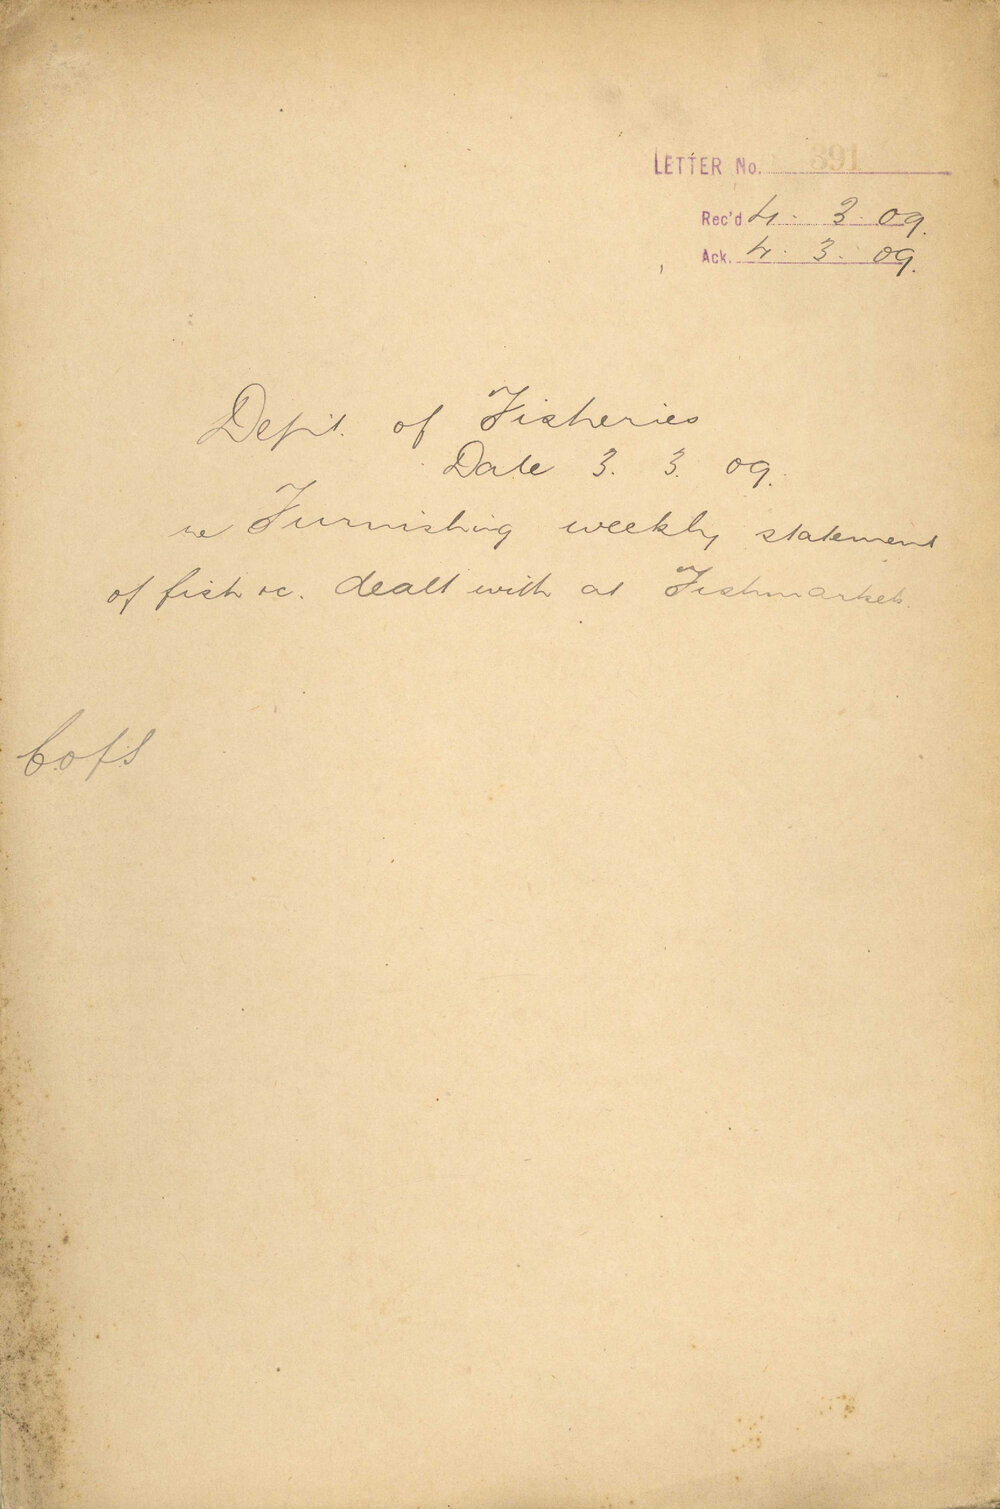 LETTER No. 391
Rec'd 4. 3. 09.
Ack. 4. 3. 09.
Dept. of Fisheries
Date 3. 3. 09.
re Furnishing weekly statement
of fish &c. dealt with at Fishmarkets.
C.of.S